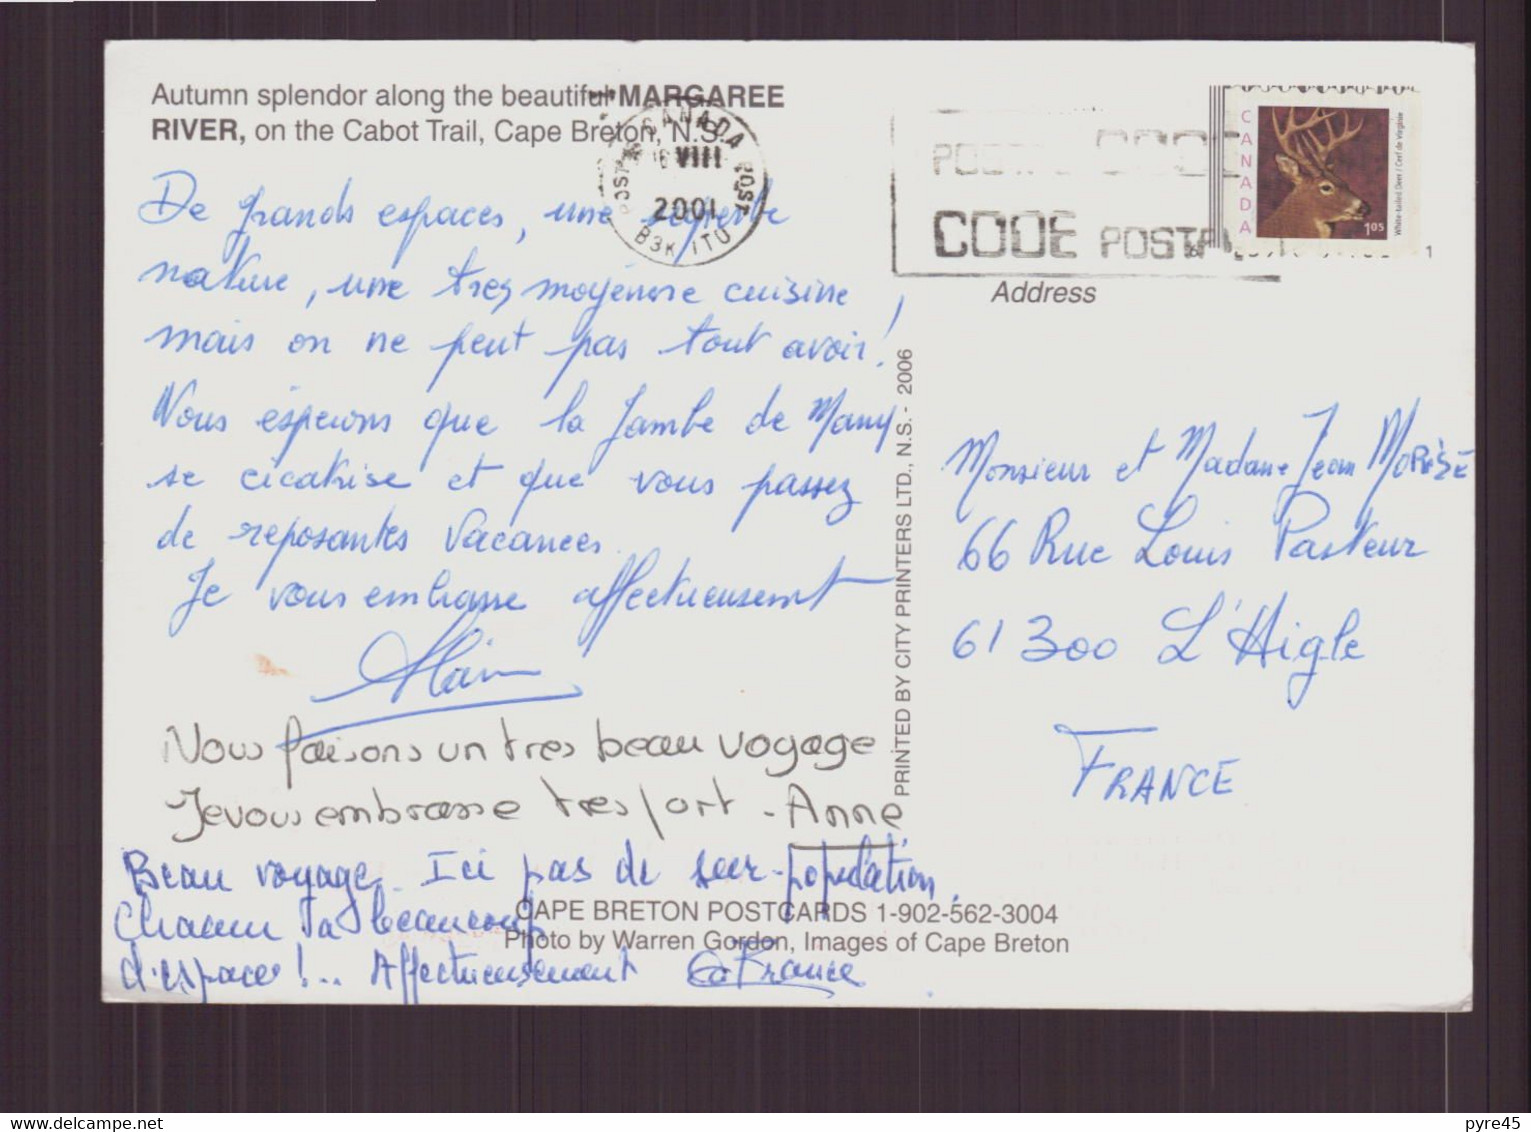 Autumn splendor along the beautiful MARGAREE
RIVER, on the Cabot Trail, Cape Breton, N.S.
CANADA POST
POSTES
VIII
2001
B3K 1T0
POSTAL CODE
CODE POSTAL
CANADA
White-tailed Deer / Cerf de Virginie
1.05
1
De grands espaces, une superbe
nature, une très moyenne cuisine,
mais on ne peut pas tout avoir!
Nous espérons que la jambe de Mamy
se cicatrise et que vous passez
de reposantes vacances.
Je vous embrasse affectueusement
Alain
Nous faisons un tres beau voyage
Je vous embrasse tres fort - Anne
Beau voyage. Ici pas de sur-population.
Chacun a beaucoup
d'espace!.. Affectueusement France
CAPE BRETON POSTCARDS 1-902-562-3004
Photo by Warren Gordon, Images of Cape Breton
PRINTED BY CITY PRINTERS LTD., N.S. - 2006
Address
Monsieur et Madame Jean
66 Rue Louis Pasteur
61300 L'Aigle
FRANCE
pyre45